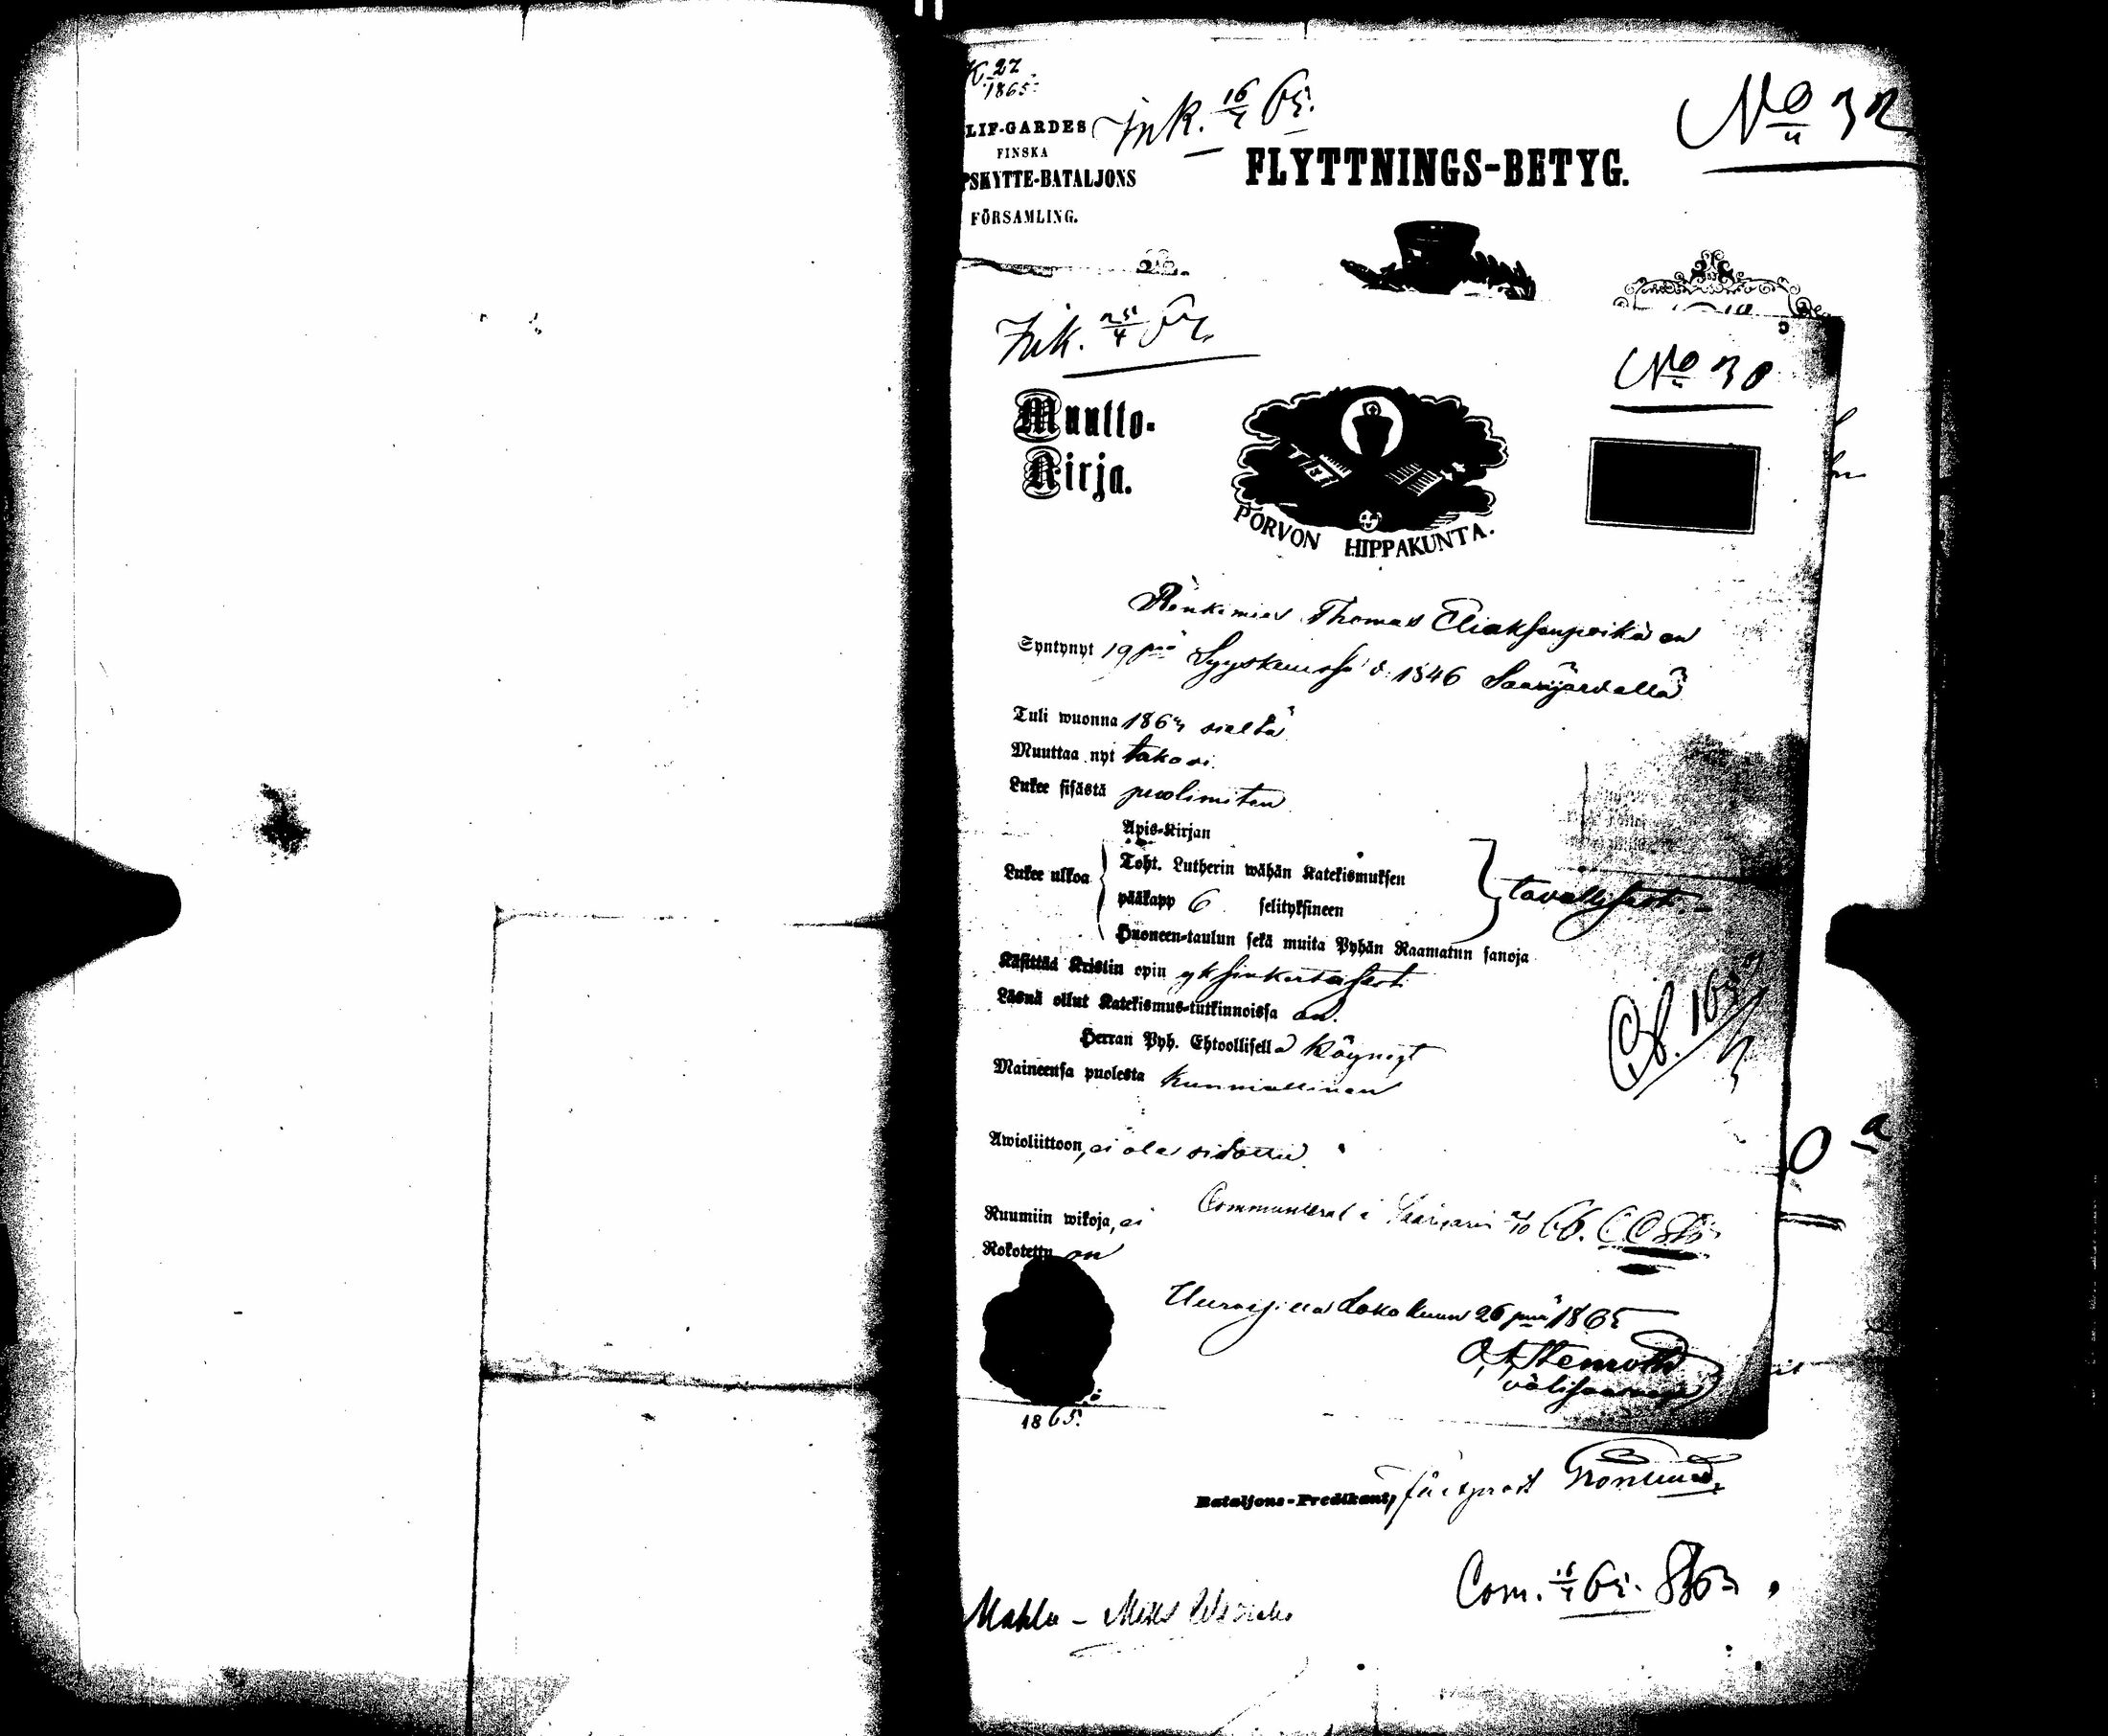 K. 27
1865.
LIF-GARDES
FINSKA
PSKYTTE-BATALJONS
FÖRSAMLING.
ink. 16/4 65.
No 32
FLYTTNINGS-BETYG.
Ink. 25/4
No 30
Muutto-
Kirja.
PORVON HIPPAKUNTA.
Renkimies Thomas Eliaksenpoika on
Syntynyt 19 p:nä Syyskuussa v. 1846 Saarijärvellä
Tuli wuonna 1863 sieltä
Muuttaa nyt takasi.
Lukee sisästä puolimiten
Apis-Kirjan
Lukee ulkoa
Toht. Lutherin wähän Katekismuksen
pääkapp 6 selityksineen
Huoneen-taulun sekä muita Pyhän Raamatun sanoja
tavallisesti.
Käsittää Kristin opin yksinkertaisesti
Läsnä ollut Katekismus-tutkinnoissa on.
Herran Pyh. Ehtoollisella käynyt
Maineensa puolesta kunniallinen
Awioliittoon, ei ole sidottu.
Ruumiin wikoja, ei
Communicerat i Saarijärvi
Rokotettu on
Lokakuun 26 p:nä 1865
O. A. Stenroth
välisaarnaaja
1865.
Bataljons-Predikant,
Com. 16/4 65.